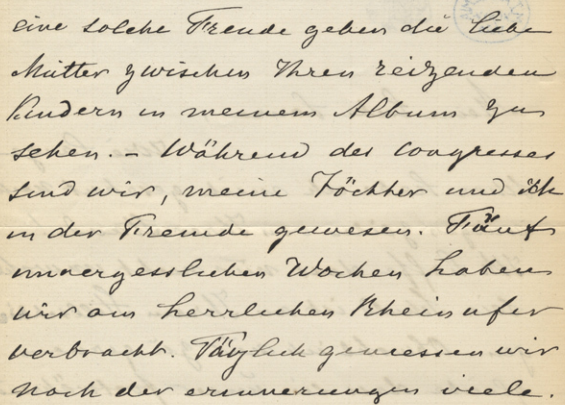 eine solche Freude geben die liebe
Mutter zwischen Ihren reitzenden
Kindern in meinem Album zu
sehen. – Während des Congresses
sind wir, meine Töchter und ich
in der Fremde gewesen. Fünf
unvergesslichen Wochen haben
wir am herrlichen Rheinufer
verbracht. Täglich geniessen wir
noch der erinnerungen viele.